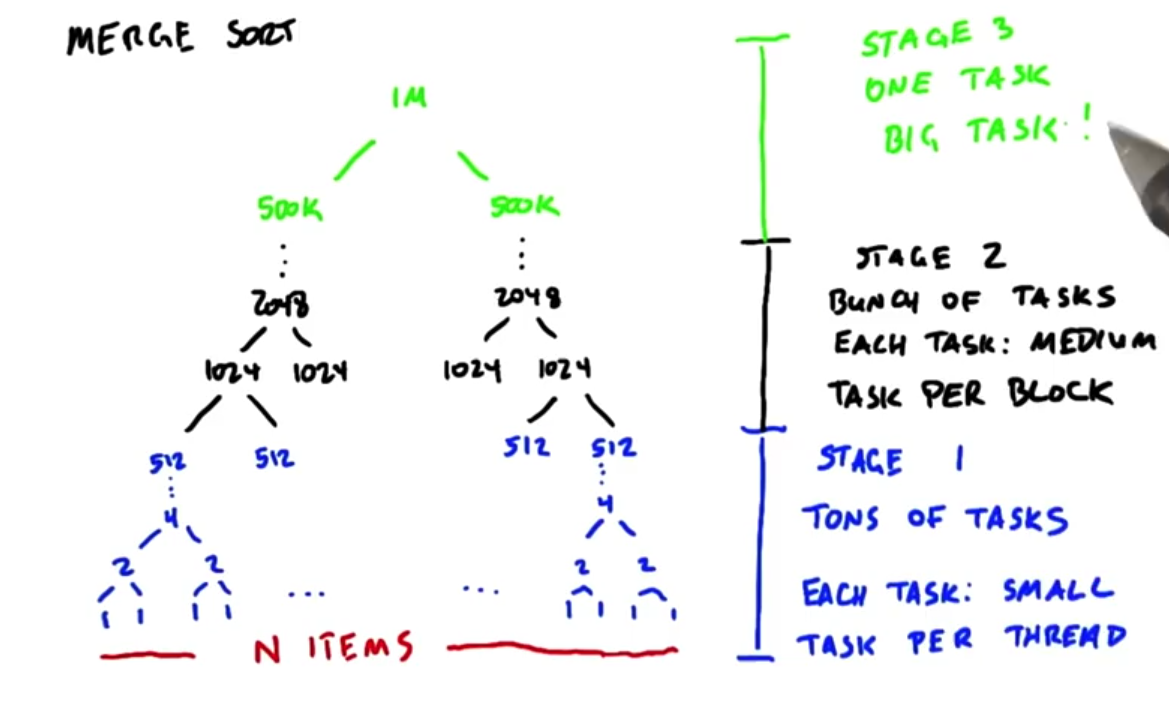 MERGE SORT
1M
500K 500K
2048 2048
1024 1024 1024 1024
512 512 512 512
4 4
2 2 ... ... 2 2
1 1 1 1 1 1 1 1
N ITEMS
STAGE 3
ONE TASK
BIG TASK!
STAGE 2
BUNCH OF TASKS
EACH TASK: MEDIUM
TASK PER BLOCK
STAGE 1
TONS OF TASKS
EACH TASK: SMALL
TASK PER THREAD